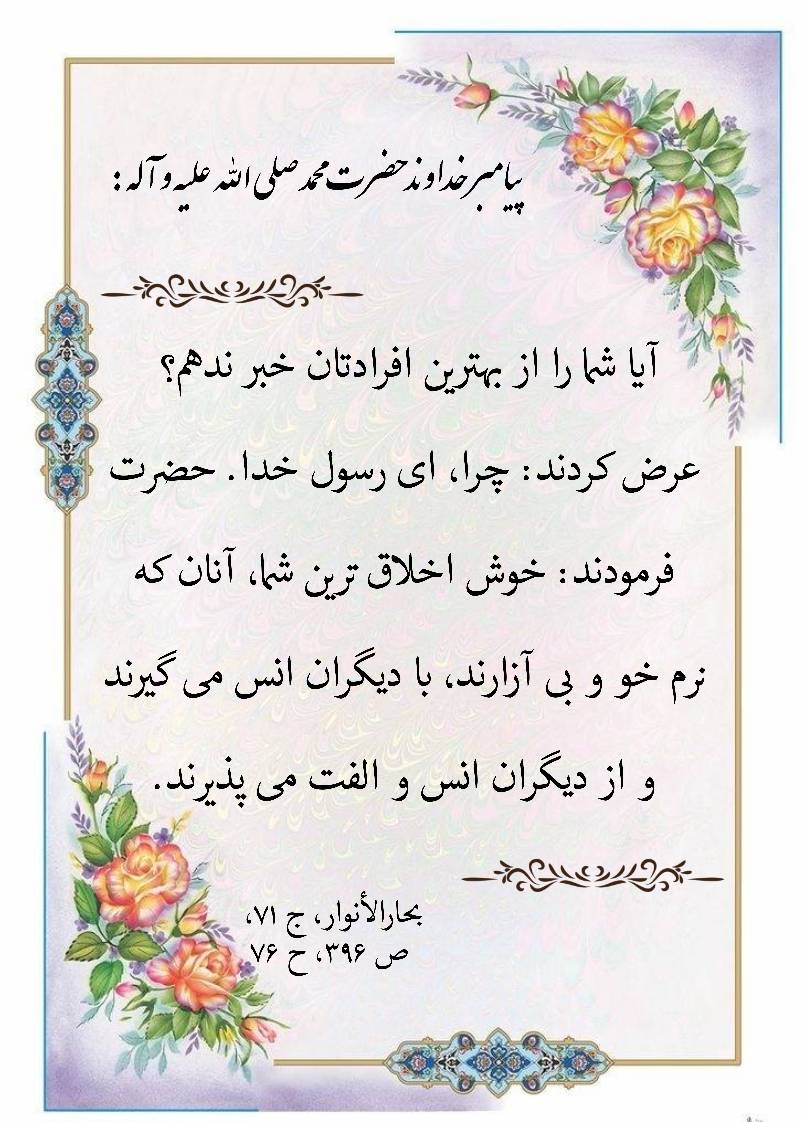 پیامبر خداوند حضرت محمد صلی الله علیه و آله:
آیا شما را از بهترین افرادتان خبر ندهم؟
عرض کردند: چرا، ای رسول خدا. حضرت
فرمودند: خوش اخلاق ترین شما، آنان که
نرم خو و بی آزارند، با دیگران انس می گیرند
و از دیگران انس و الفت می پذیرند.
بحارالأنوار، ج ۷۱،
ص ۳۹۶، ح ۷۶